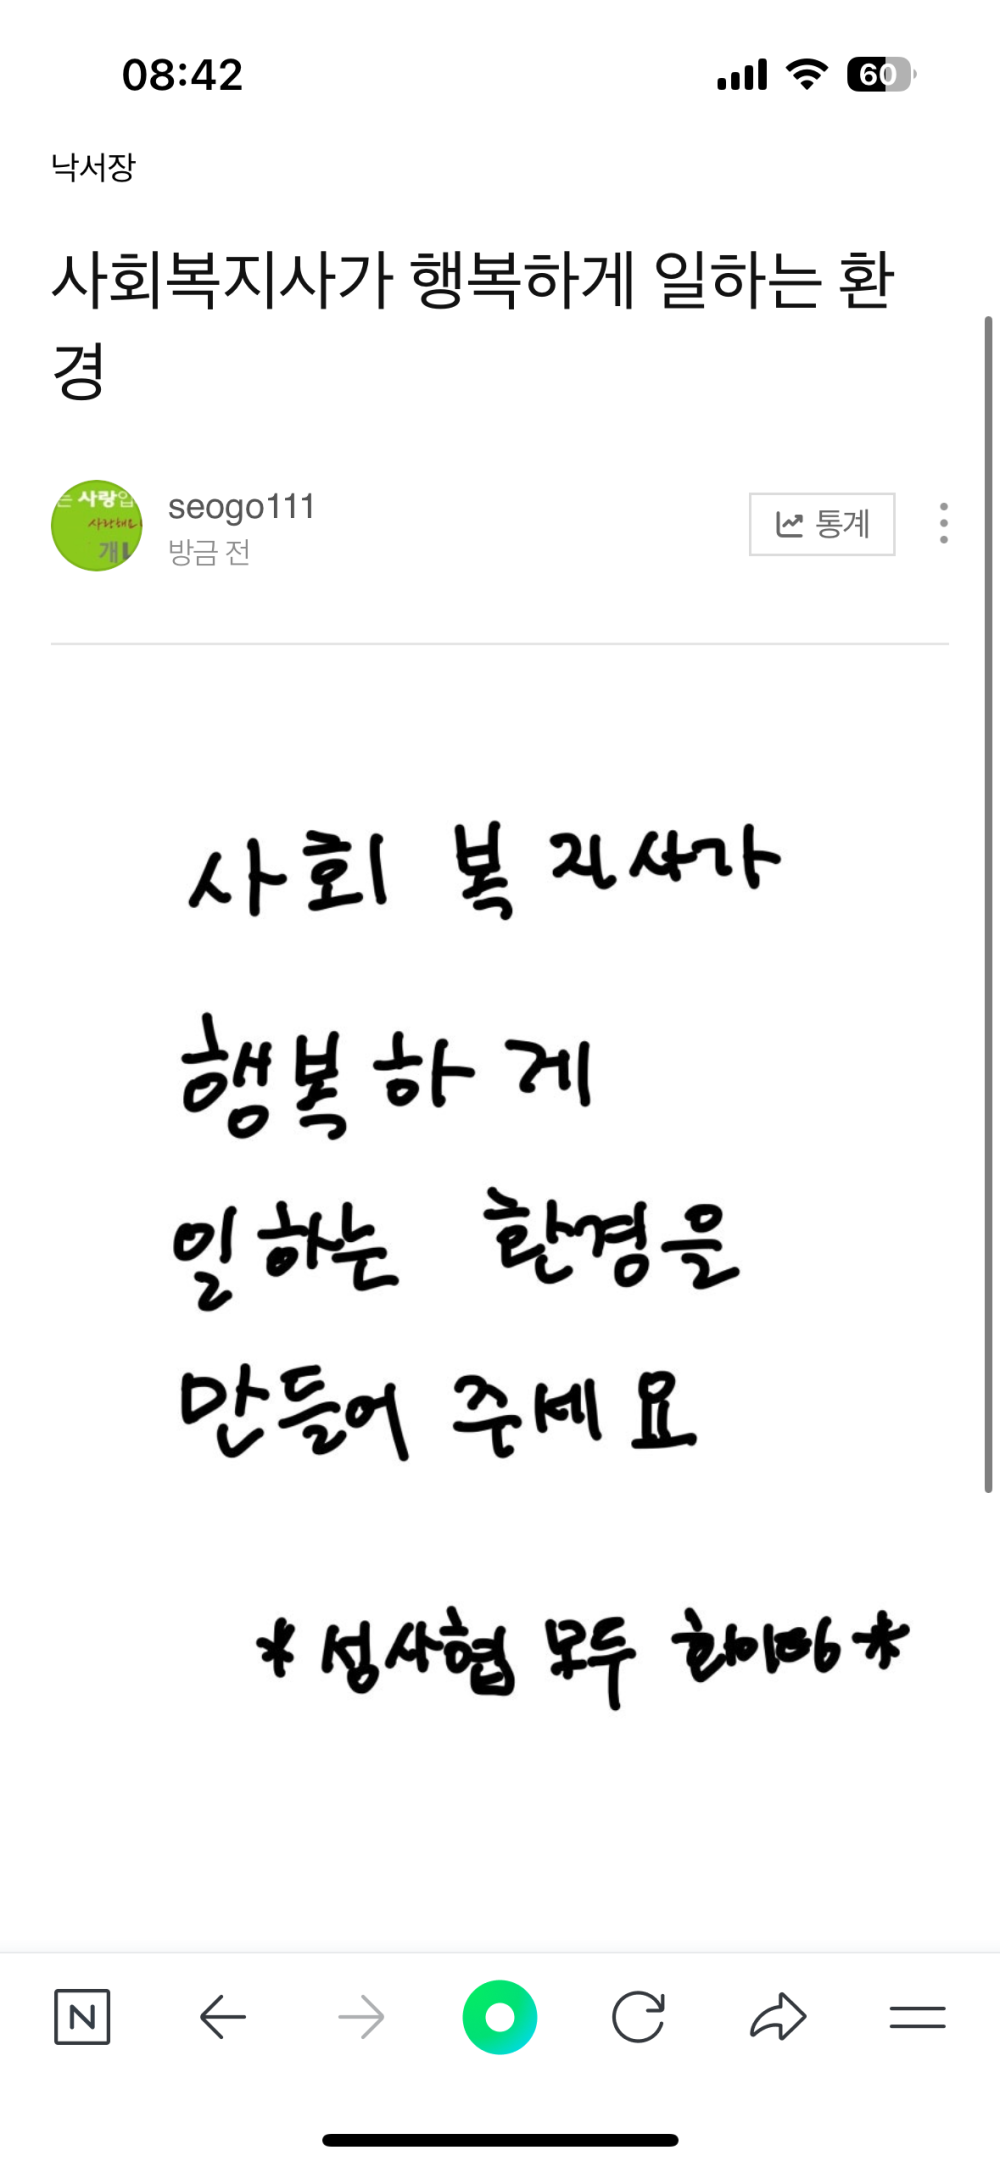 08:42
60
낙서장
사회복지사가 행복하게 일하는 환
경
는 사랑입
사랑해요
개
seogo111
방금 전
통계
사회 복지사가
행복하게
일하는 환경을
만들어 주세요
* 성사협 모두 화이팅 *
N